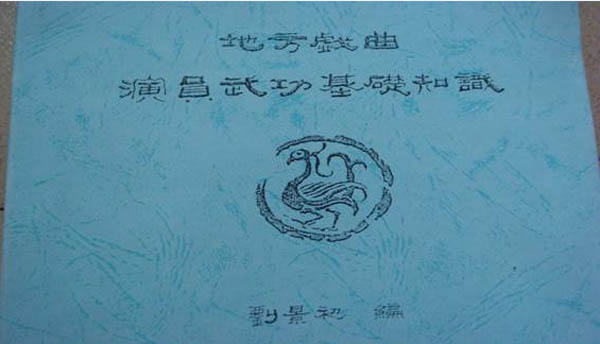 地方戯曲
演員武功基礎知識
劉景初 編